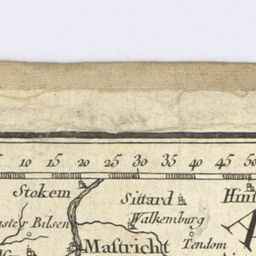 5 10 15 20 25 30 35 40 45 50
Stokem
Sittard
Bilsen
Walkemburg
Mastricht
Tendom